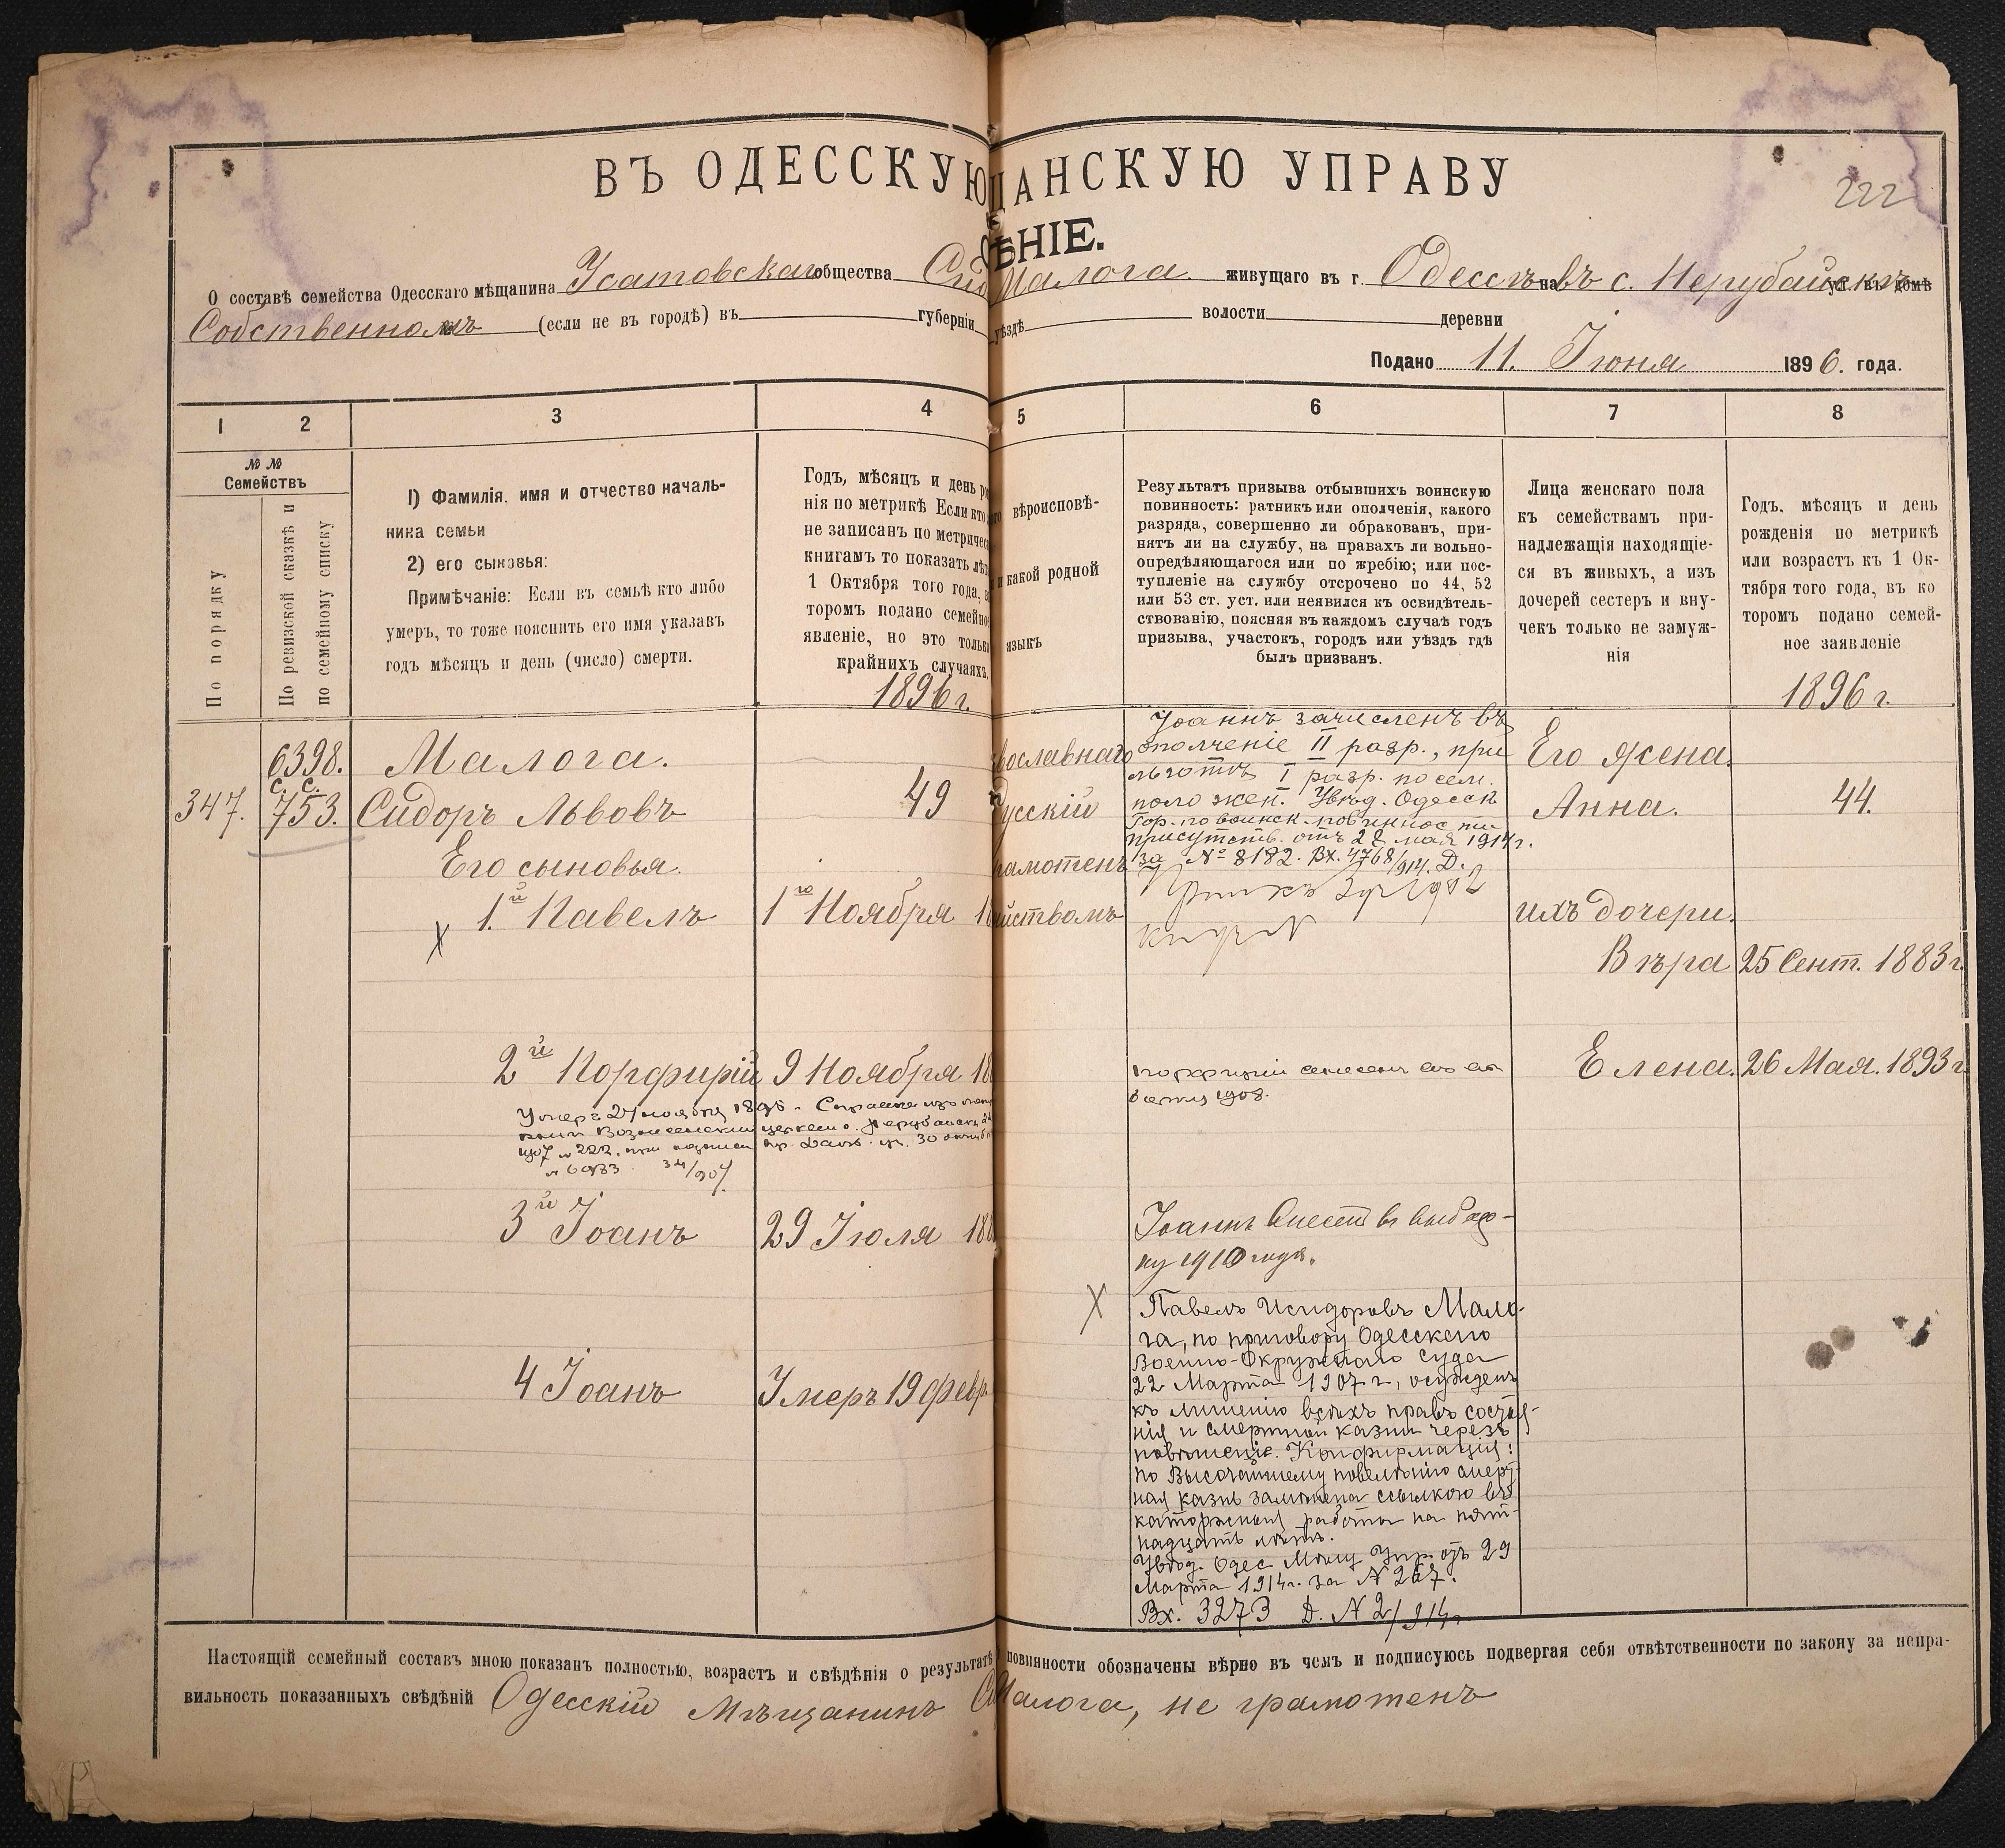 ВЪ ОДЕССКУЮ ЩАНСКУЮ УПРАВУ
222
ѢНІЕ.
О составѣ семейства Одесскаго мѣщанина Усатовскаго общества Сид Малога живущаго въ г. Одессѣ на въ с. Нерубайскѣ ул. въ домѣ
Собственномъ (если не въ городѣ) въ губерніи уѣздѣ волости деревни
Подано 11. Іюня 1896. года.
1 2 3 4 5 6 7 8
№ №
Семействъ
По порядку
По ревизской сказкѣ и
по семейному списку
1) Фамилія, имя и отчество началь-
ника семьи
2) его сыновья:
Примѣчаніе: Если въ семьѣ кто либо
умеръ, то тоже пояснить его имя указавъ
годъ мѣсяцъ и день (число) смерти.
Годъ, мѣсяцъ и день ро
нія по метрикѣ Если кто
не записанъ по метричес
книгамъ то показать лѣт
1 Октября того года, в
торомъ подано семейно
явленіе, но это только
крайнихъ случаяхъ.
1896 г.
вѣроисповѣ-
и какой родной
языкъ
Результатъ призыва отбывшихъ воинскую
повинность: ратникъ или ополченія, какого
разряда, совершенно ли обракованъ, при-
нятъ ли на службу, на правахъ ли вольно-
опредѣляющагося или по жребію; или пос-
тупленіе на службу отсрочено по 44, 52
или 53 ст. уст. или неявился къ освидѣтель-
ствованію, поясняя въ каждомъ случаѣ годъ
призыва, участокъ, городъ или уѣздъ гдѣ
былъ призванъ.
Лица женскаго пола
къ семействамъ при-
надлежащія находящіе-
ся въ живыхъ, а изъ
дочерей сестеръ и вну-
чекъ только не замуж-
нія
Годъ, мѣсяцъ и день
рожденія по метрикѣ
или возрастъ къ 1 Ок-
тября того года, въ ко
торомъ подано семей-
ное заявленіе
1896 г.
347.
6398.
с. с.
753.
Малога.
Сидоръ Львовъ 49
Его сыновья.
1.й Павелъ 1го Ноября 1
X
2й Порфирій 9 Ноября 18
Умеръ 27 ноября 1895.
1907 № 222, 30
№ 6983 34/907
3й Іоанъ 29 Іюля 188
4 Іоанъ Умеръ 19 февр.
вославнаго
Русскій
рамотенъ
йствомъ
Іоаннъ зачисленъ въ
ополченіе II разр., при
льготѣ I разр. по сем.
полож ен. Увѣд. Одесск.
Гор. по воинск. повиннос ти
присутств. отъ 28 мая 1914 г.
за № 8182. Вх. 4768/914. Д.
Порфирій
1908.
Іоаннъ внесенъ въ выбор-
ку 1910 года.
X
Павелъ Исидоровъ Мало-
га, по приговору Одесскаго
Военно-Окружнаго суда
22 Марта 1907 г, осужденъ
къ лишенію всѣхъ правъ состоя-
нія и смертной казни черезъ
повѣшеніе. Конфирмація:
по Высочайшему повелѣнію смерт-
ная казнь замѣнена ссылкою въ
каторжныя работы на пят-
надцать лѣтъ.
Увѣд. Одес Мѣщ Упр. отъ 29
Марта 1914 г. за № 267.
Вх. 3273 Д. № 2/914 г.
Его жена.
Анна. 44.
ихъ дочери.
Вѣра 25 Сент. 1883 г.
Елена. 26 Мая. 1893 г
Настоящій семейный составъ мною показанъ полностью, возрастъ и свѣдѣнія о результатѣ повинности обозначены вѣрно въ чемъ и подписуюсь подвергая себя отвѣтственности по закону за непра-
вильность показанныхъ свѣдѣній Одесскій мѣщанинъ Си Малога, не грамотенъ